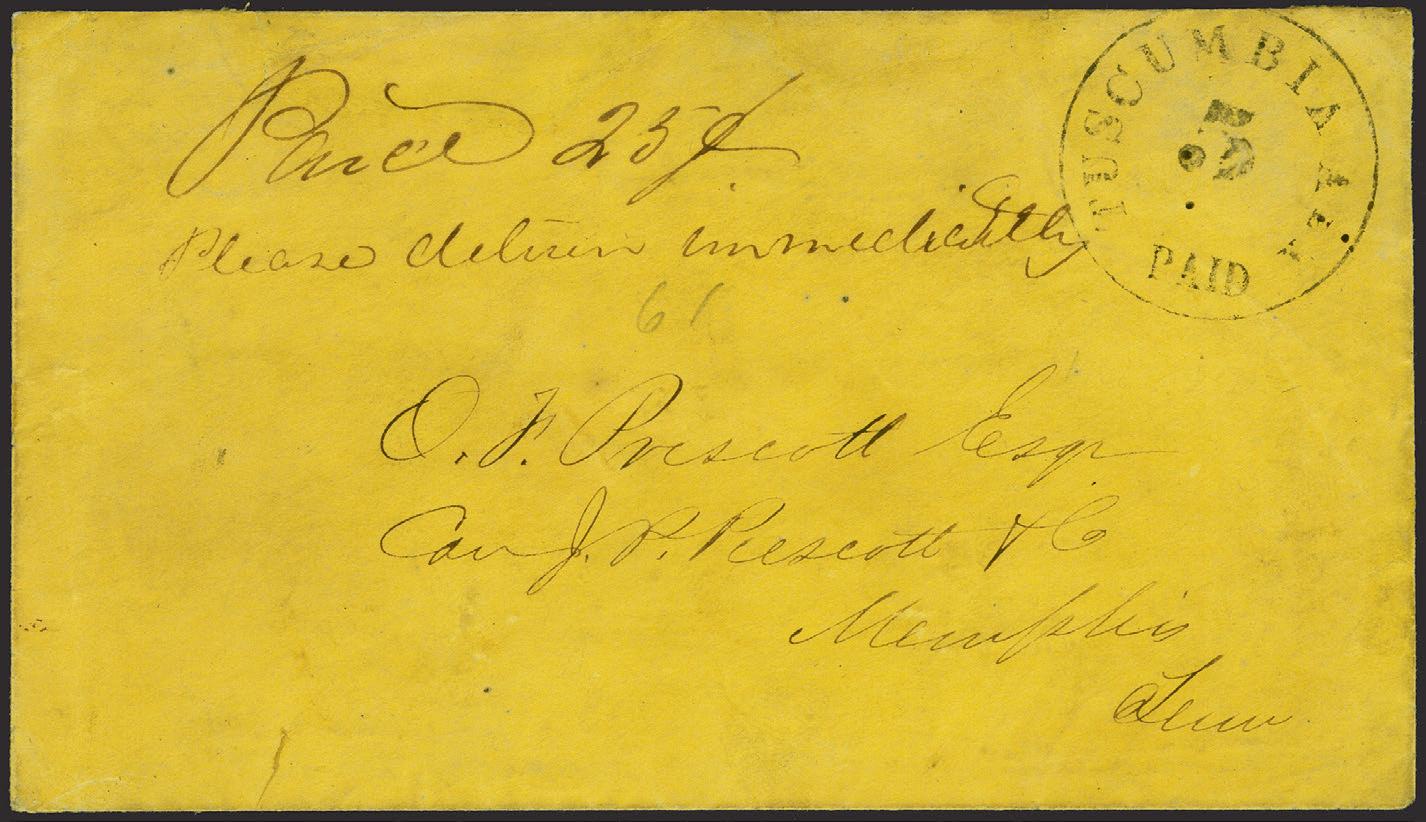 Paid 25¢
Please deliver immediately
TUSCUMBIA
PAID
61
O. F. Prescott Esqr
Car J. P. Prescott & Co
Memphis
Tenn